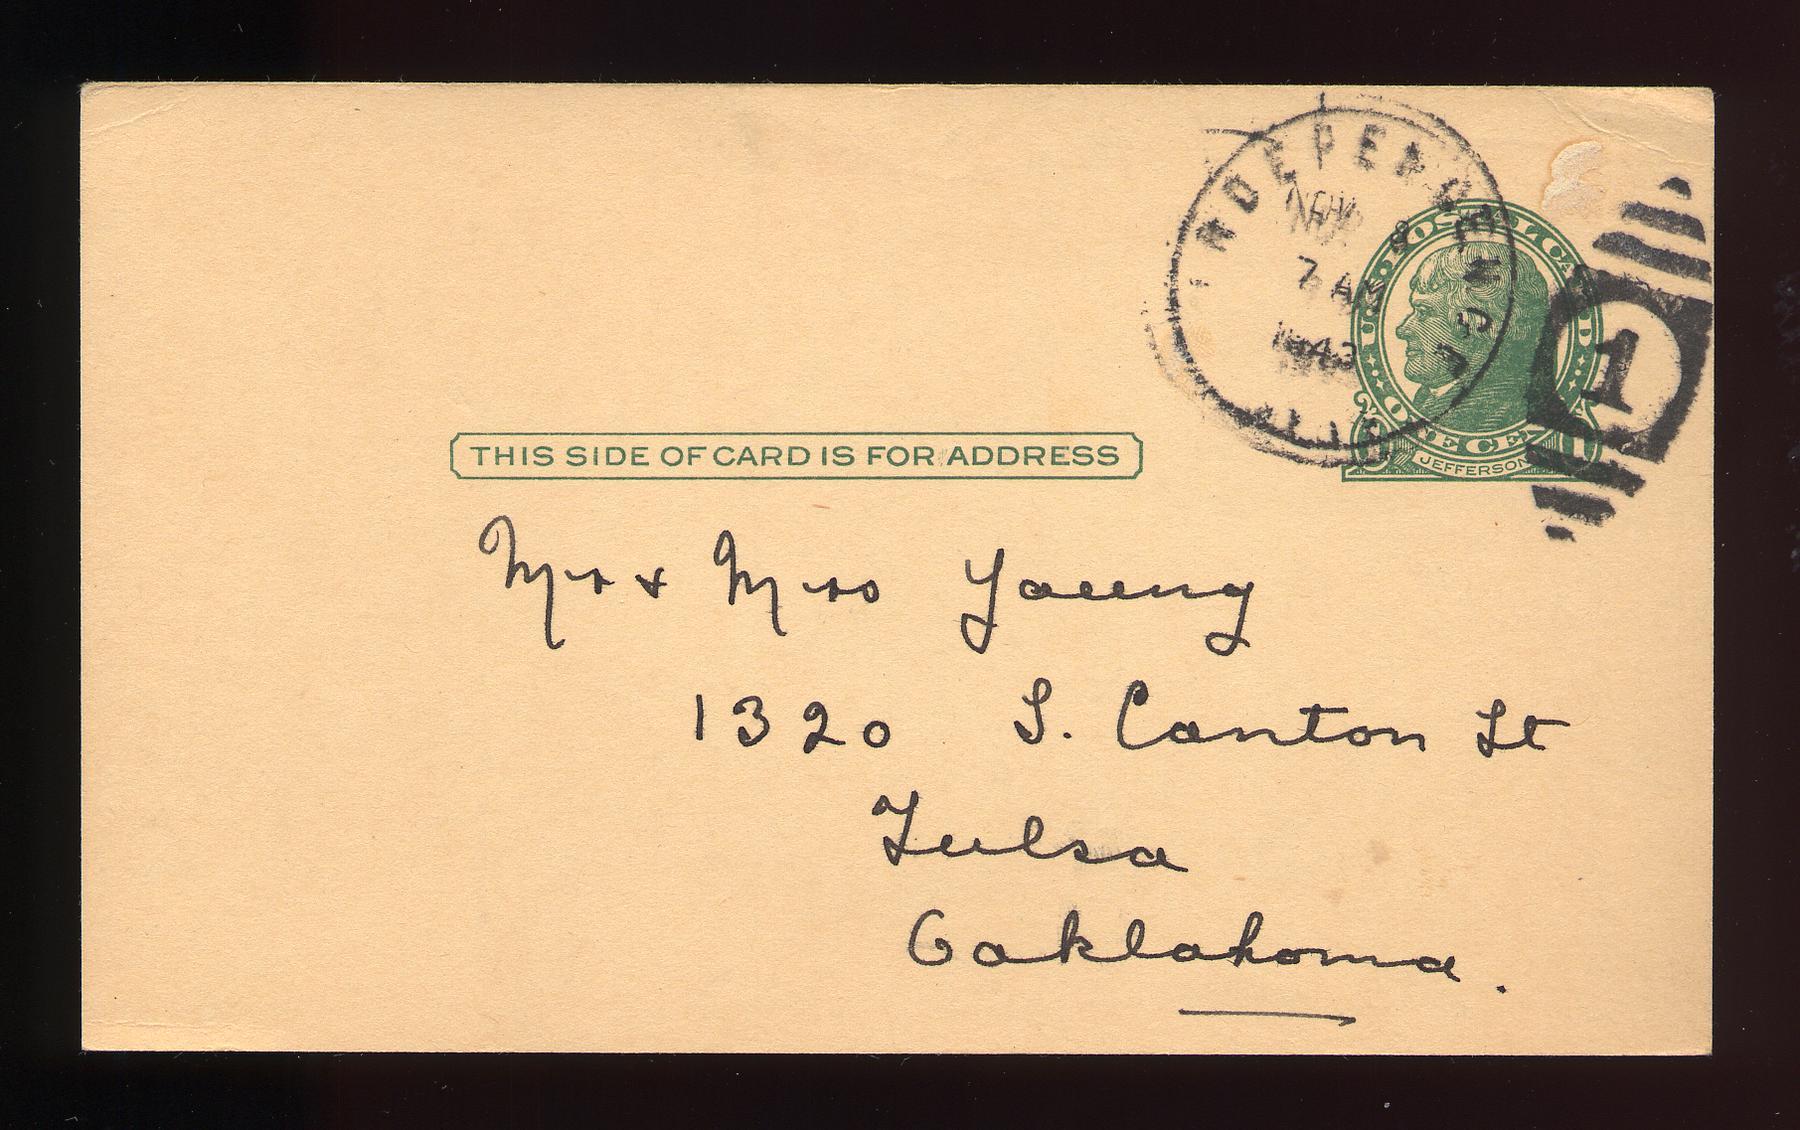 INDEPENDENCE
8
7 AM
1943
U.S. POSTAL CARD
ONE CENT
JEFFERSON
1
THIS SIDE OF CARD IS FOR ADDRESS
Mr & Mrs Young
1320 S. Canton St
Tulsa
Oaklahoma.